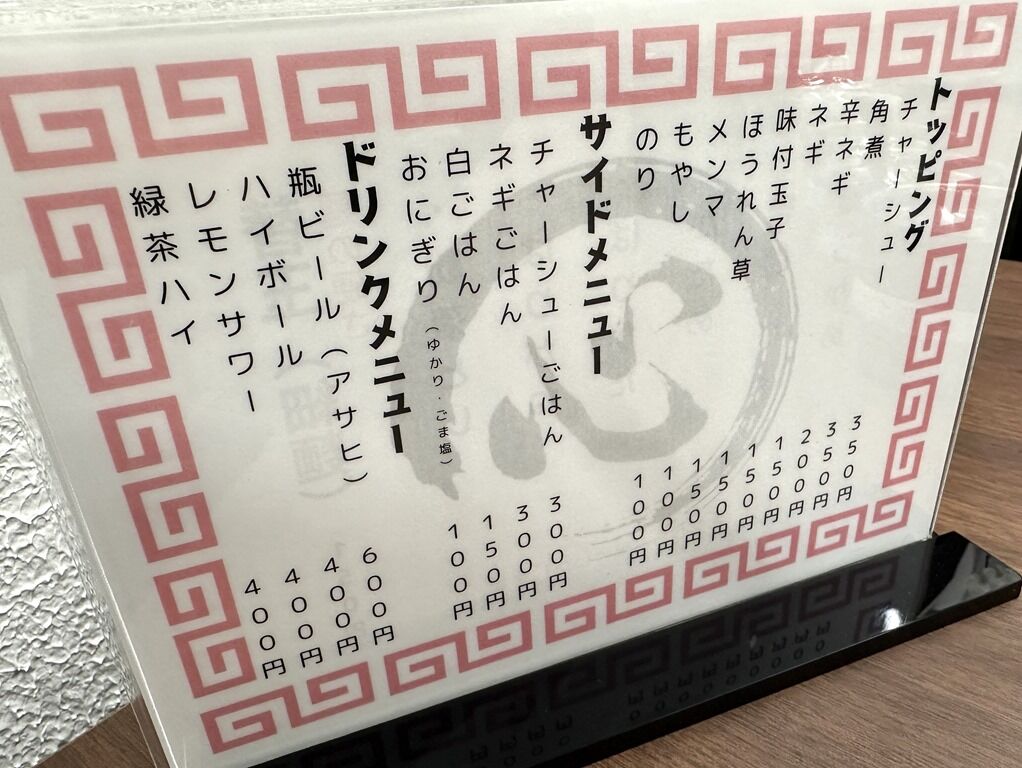 トッピング
チャーシュー 350円
角煮 350円
辛ネギ 200円
ネギ 150円
味付玉子 150円
ほうれん草 150円
メンマ 150円
もやし 100円
のり 100円
サイドメニュー
チャーシューごはん 300円
ネギごはん 300円
白ごはん 150円
おにぎり（ゆかり・ごま塩） 100円
ドリンクメニュー
瓶ビール（アサヒ） 600円
ハイボール 400円
レモンサワー 400円
緑茶ハイ 400円
心